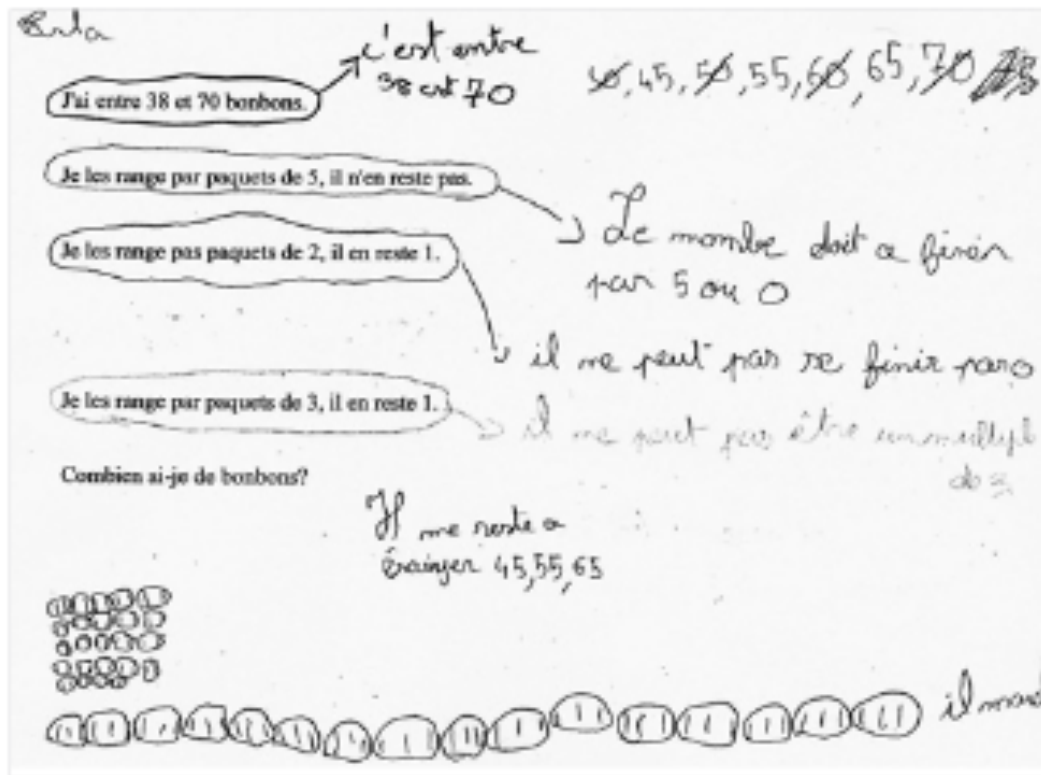 c'est entre
38 est 70
40, 45, 50, 55, 60, 65, 70
J'ai entre 38 et 70 bonbons.
Je les range par paquets de 5, il n'en reste pas.
Le nombre doit a finir
par 5 ou 0
Je les range pas paquets de 2, il en reste 1.
il ne peut pas se finir par 0
Je les range par paquets de 3, il en reste 1.
il ne peut pas être un multipl
de
Combien ai-je de bonbons?
Il me reste a
45, 55, 65
il